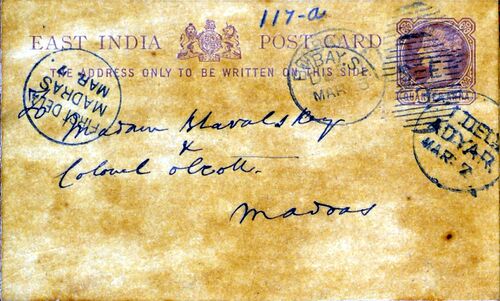 117-a
EAST INDIA POST CARD
THE ADDRESS ONLY TO BE WRITTEN ON THIS SIDE
FIRST DEL
MADRAS
MAR 7
BOMBAY
MAR
E
DEL
ADYAR
MAR 7
To Madam Blavalskey
&
Colonel olcott.
Madras